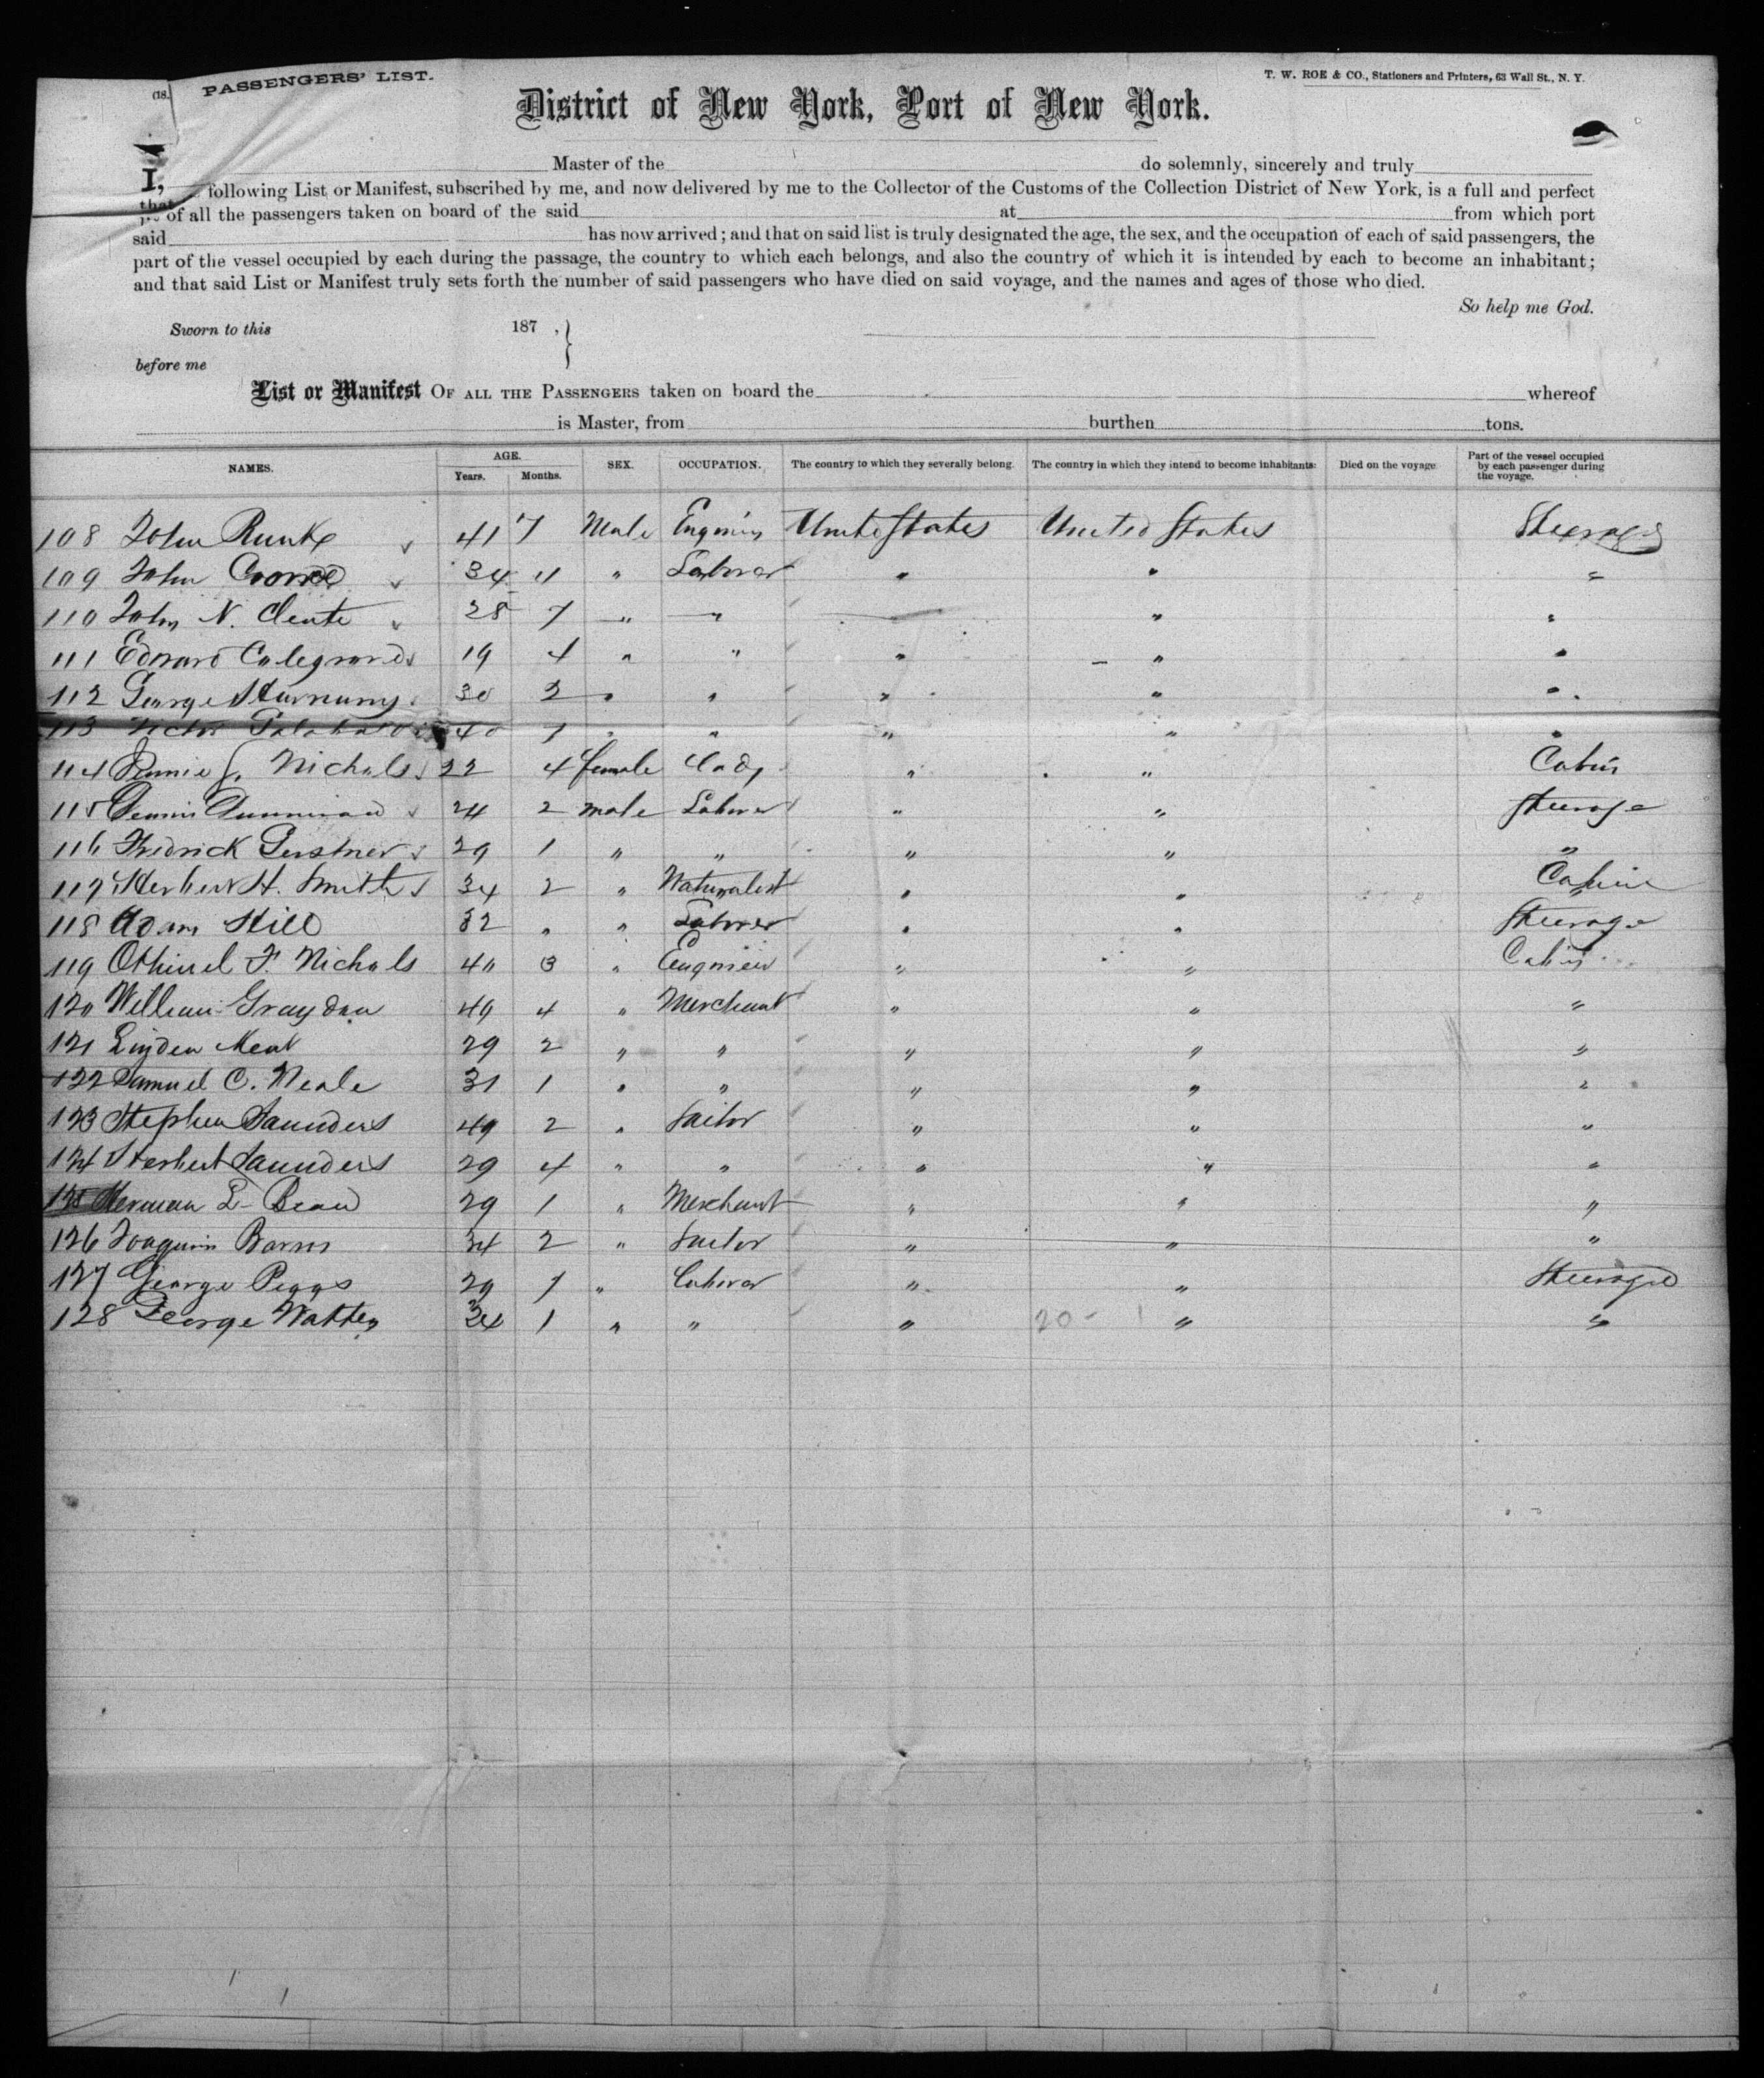 (18.
PASSENGERS' LIST.
T. W. ROE & CO., Stationers and Printers, 63 Wall St., N. Y.
District of New York, Port of New York.
I, Master of the do solemnly, sincerely and truly
that following List or Manifest, subscribed by me, and now delivered by me to the Collector of the Customs of the Collection District of New York, is a full and perfect
of all the passengers taken on board of the said at from which port
said has now arrived; and that on said list is truly designated the age, the sex, and the occupation of each of said passengers, the
part of the vessel occupied by each during the passage, the country to which each belongs, and also the country of which it is intended by each to become an inhabitant;
and that said List or Manifest truly sets forth the number of said passengers who have died on said voyage, and the names and ages of those who died.
So help me God.
Sworn to this 187 , }
before me
List or Manifest OF ALL THE PASSENGERS taken on board the whereof
is Master, from burthen tons.
NAMES. AGE. Years. Months. SEX. OCCUPATION. The country to which they severally belong. The country in which they intend to become inhabitants: Died on the voyage Part of the vessel occupied by each passenger during the voyage.
108 John 41 7 Male United States United States Steerage
109 John 34 4 " Laborer " " "
110 John N. Clente 28 7 " " " "
111 Edward 19 4 " " " " "
112 George 30 2 " " " " "
113 Victor 40 7 " " " " "
114 Nichols 22 4 female Lady " " Cabin
115 24 2 male Laborer " " Steerage
116 Fredrick Gerstner 29 1 " " " " "
117 Herbert H. Smith 34 2 " Naturalist " " Cabin
118 Adam Hill 32 " " Laborer " " Steerage
119 Othniel F. Nichols 40 3 " Engineer " " Cabin
120 William Graydon 49 4 " Merchant " " "
121 Linden Kent 29 2 " " " " "
122 Samuel C. Neale 31 1 " " " " "
123 Stephen Saunders 49 2 " Sailor " " "
124 Herbert Saunders 29 4 " " " " "
125 Herman L. Bean 29 1 " Merchant " " "
126 Joaquin Barros 34 2 " Sailor " " "
127 George Peggs 29 7 " Laborer " " Steerage
128 George 34 1 " " " 20 - 1 " "